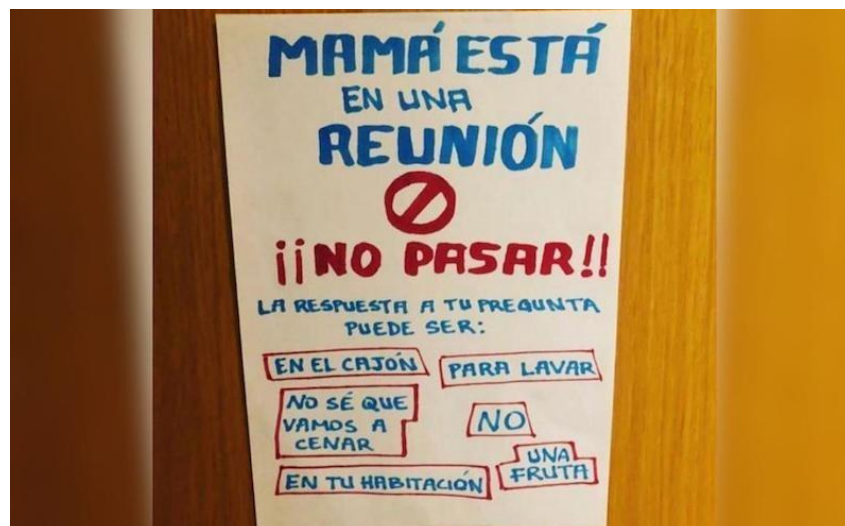 MAMÁ ESTÁ
EN UNA
REUNIÓN
¡¡NO PASAR!!
LA RESPUESTA A TU PREGUNTA
PUEDE SER:
EN EL CAJÓN
PARA LAVAR
NO SÉ QUE
VAMOS A
CENAR
NO
UNA
FRUTA
EN TU HABITACIÓN